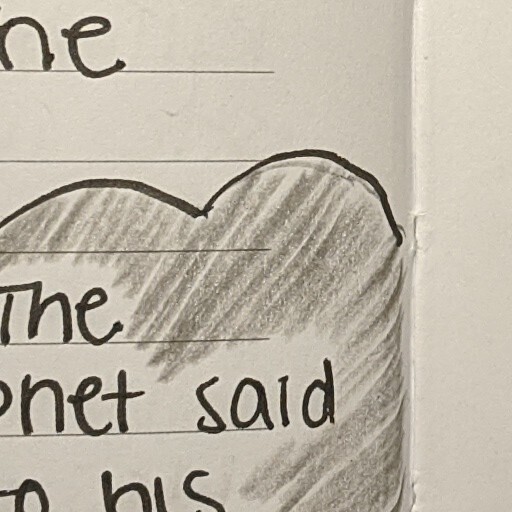 he
The
onet said
to his